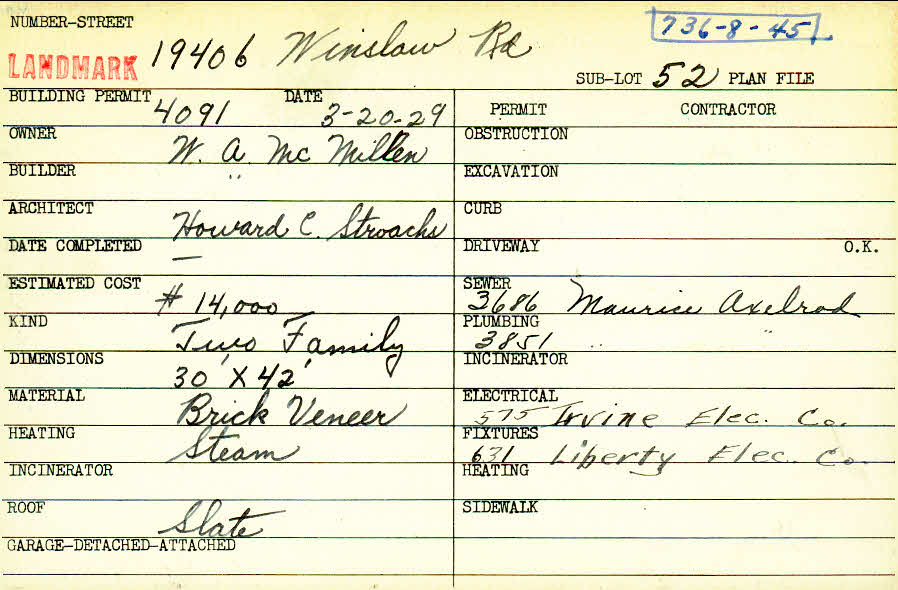 NUMBER-STREET
736-8-45
LANDMARK 19406 Winslow Rd
SUB-LOT 52 PLAN FILE
BUILDING PERMIT 4091 DATE 3-20-29
PERMIT CONTRACTOR
OWNER W. A. Mc Millen
OBSTRUCTION
BUILDER "
EXCAVATION
ARCHITECT Howard C. Stroachs
CURB
DATE COMPLETED —
DRIVEWAY O.K.
ESTIMATED COST $ 14,000
SEWER 3686 Maurice Axelrod
KIND Two Family
PLUMBING 3851 " "
DIMENSIONS 30' X 42'
INCINERATOR
MATERIAL Brick Veneer
ELECTRICAL 575 Irvine Elec. Co.
HEATING Steam
FIXTURES 631 Liberty Elec. Co.
INCINERATOR
HEATING
ROOF Slate
SIDEWALK
GARAGE-DETACHED-ATTACHED